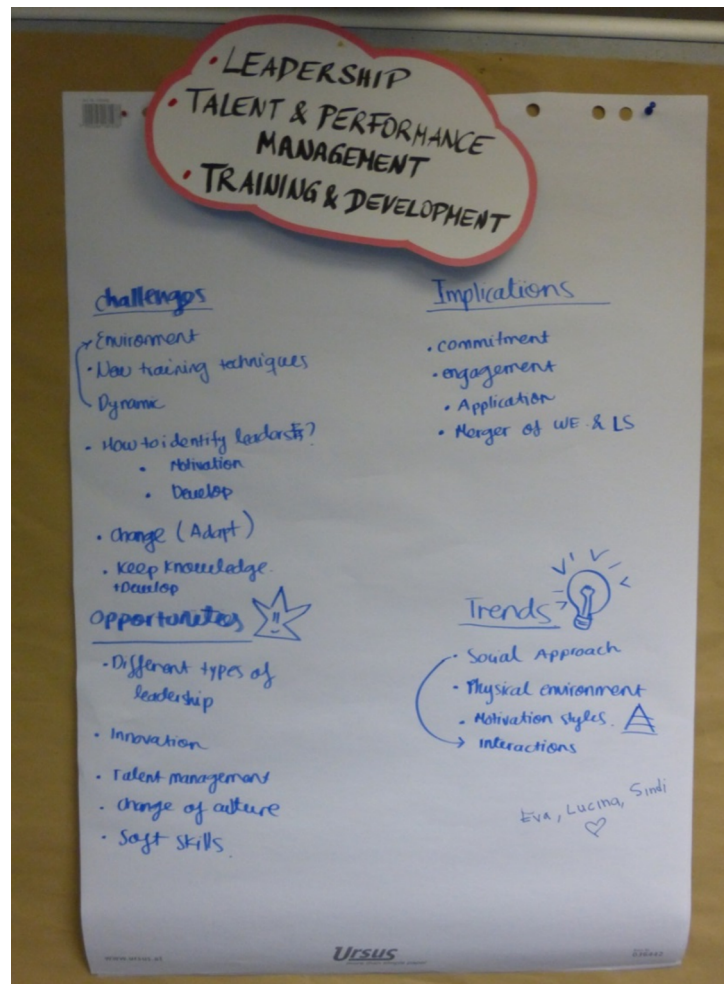 • LEADERSHIP
• TALENT & PERFORMANCE
MANAGEMENT
• TRAINING & DEVELOPMENT
challenges
Environment
• New training techniques
Dynamic
• How to identify leaders?
• Motivation
• Develop
• change (Adapt)
• Keep knowledge.
+Develop
Opportunities
• Different types of
leadership
• Innovation
• Talent management
• change of culture
• Soft skills.
Implications
• commitment
• engagement
• Application
• Merger of WE & LS
Trends
• Social Approach
• Physical environment
• Motivation styles.
Interactions
Eva, Lucina, Sindi
www.ursus.at
Ursus